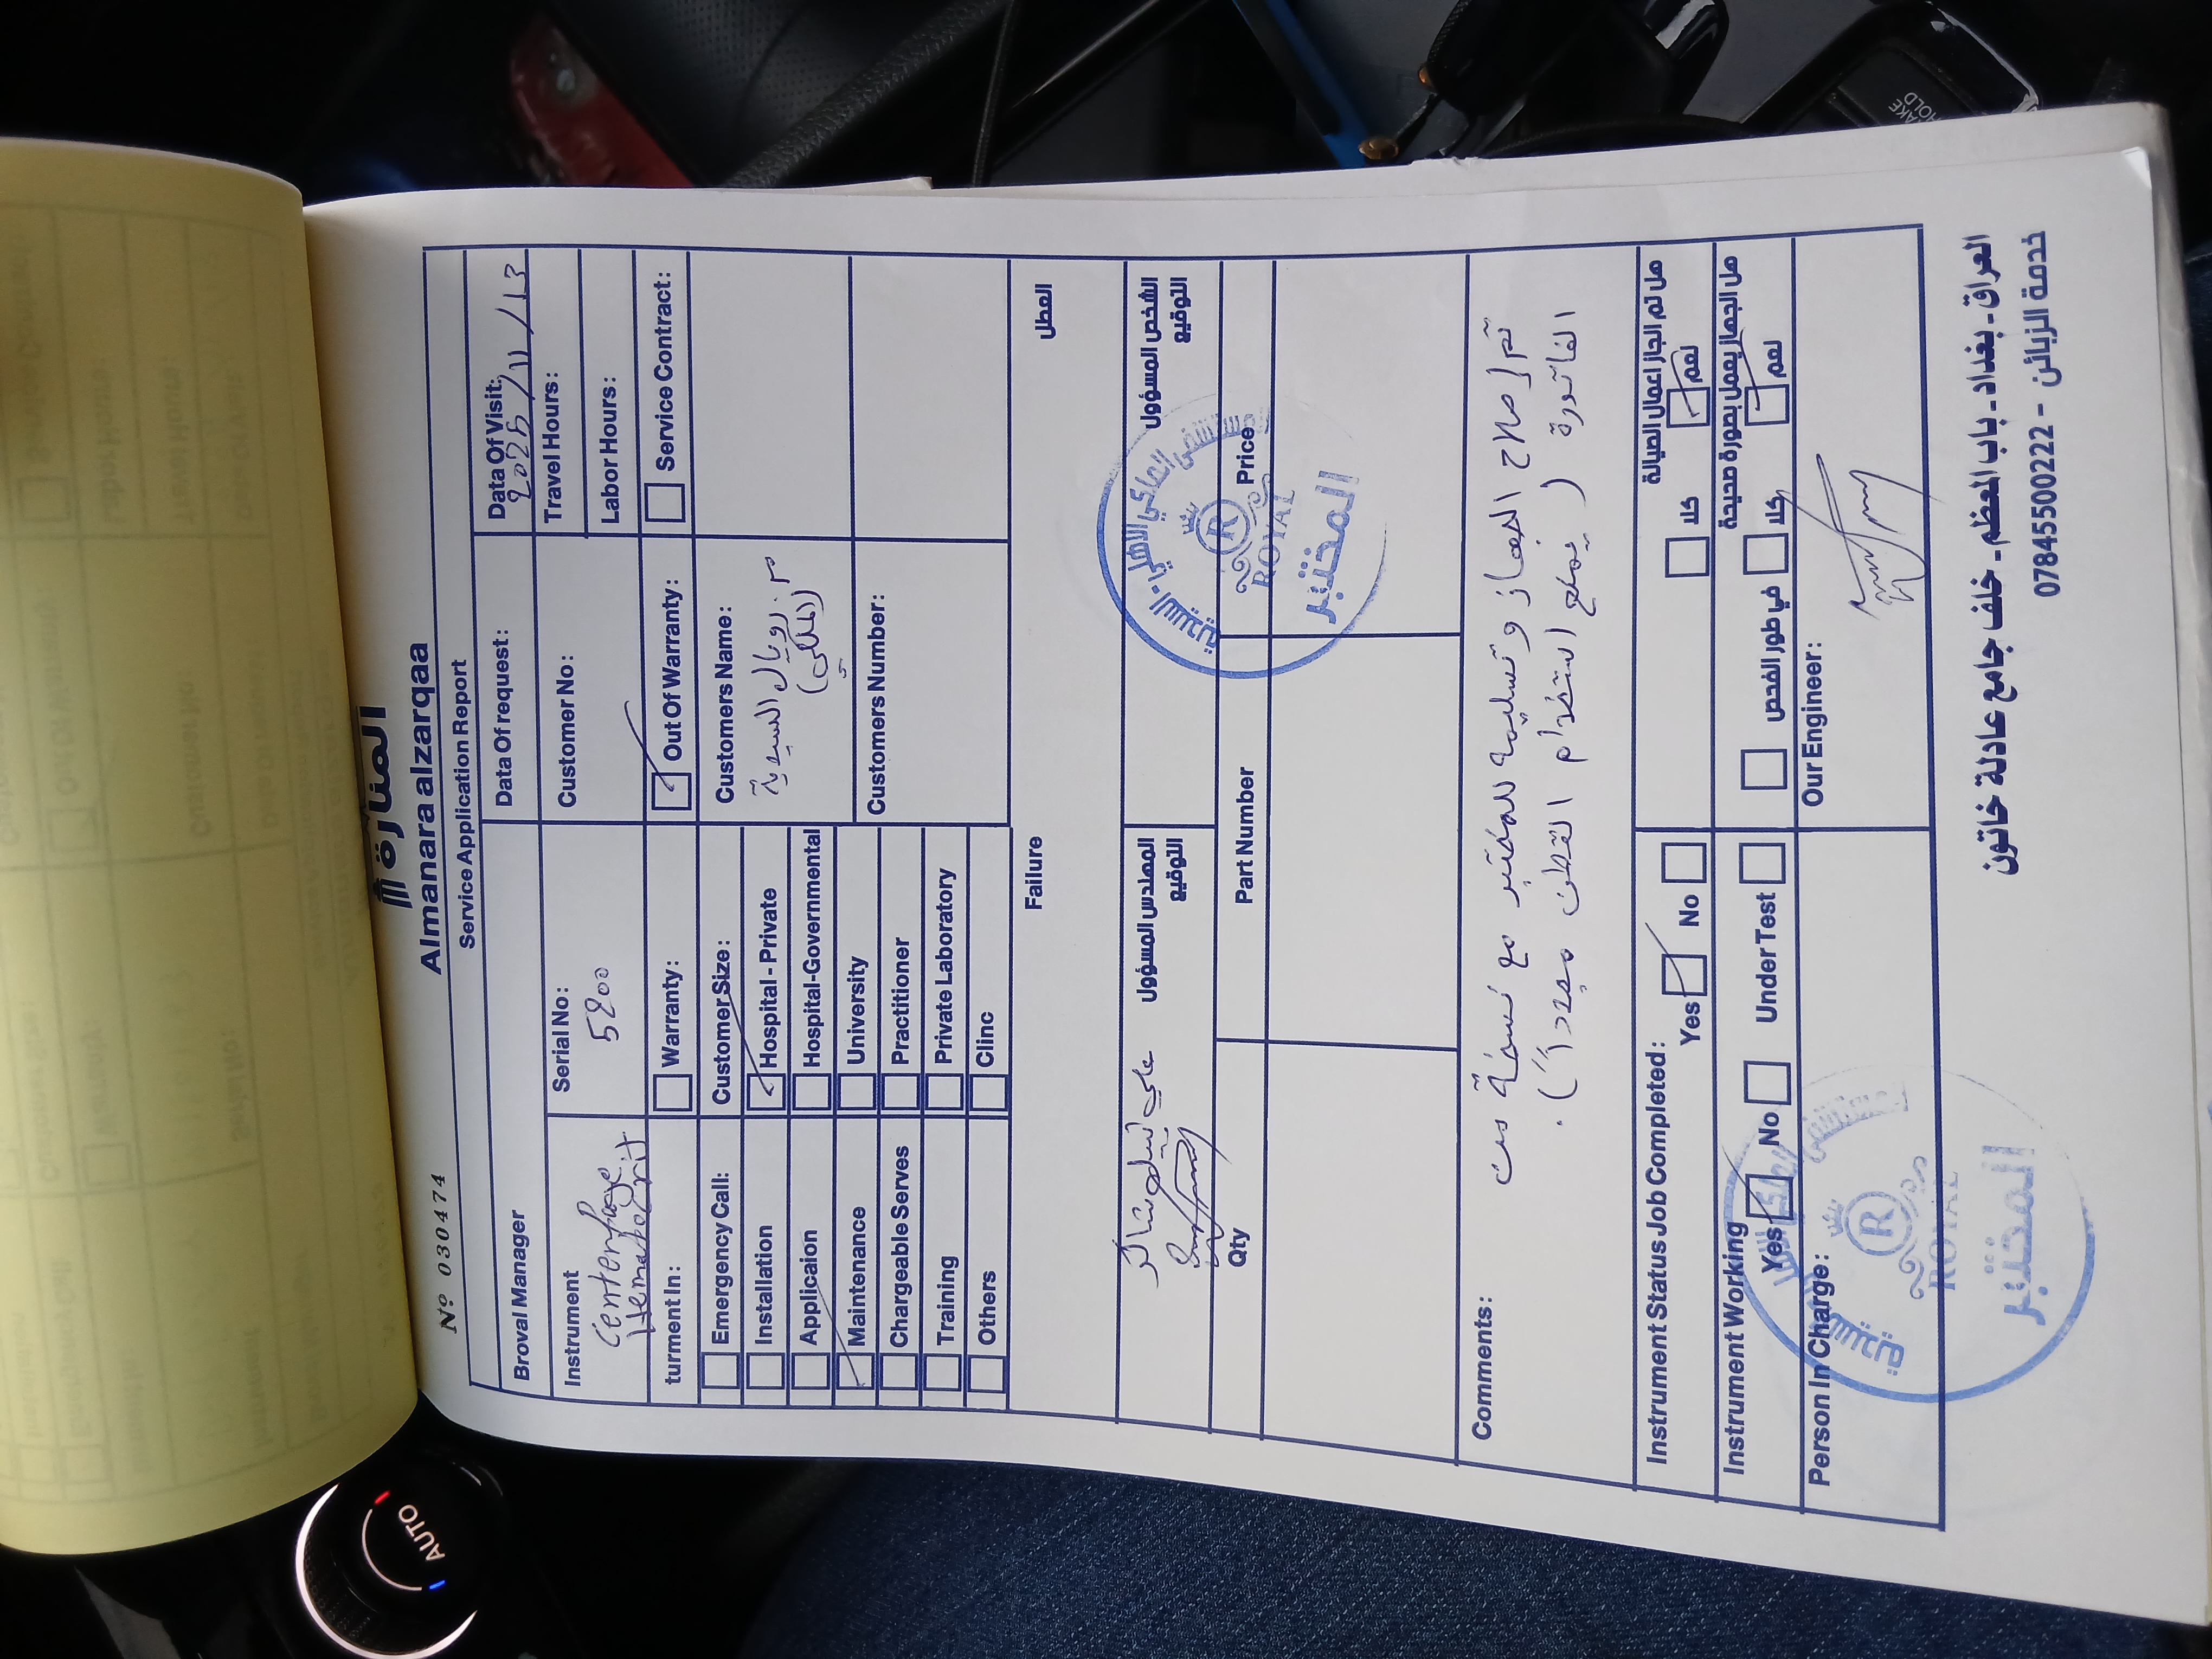 المنارة
Almanara alzarqaa
Nº 030474
Service Application Report
Broval Manager
Data Of request:
Data Of Visit:
2025/11/13
Instrument
Centerfuge
Hematocrit
Serial No:
5200
Customer No:
Travel Hours:
Labor Hours:
turment In:
Warranty:
Out Of Warranty:
Service Contract:
Emergency Call:
Installation
Applicaion
Maintenance
Chargeable Serves
Training
Others
Customer Size:
Hospital - Private
Hospital-Governmental
University
Practitioner
Private Laboratory
Clinc
Customers Name:
م. رويال السيدية
(الملكي)
Customers Number:
Failure
العطل
المهندس المسؤول
التوقيع
علي
الشخص المسؤول
التوقيع
Qty
Part Number
Price
ROYAL
المختبر
Comments:
تم إصلاح الجهاز وتسليمه للمختبر مع نسخة من
الفاتورة (يمنع استخدام القطن مجدداً).
Instrument Status Job Completed:
Yes
No
هل تم انجاز اعمال الصيانة
كلا
نعم
Instrument Working
Yes
No
Under Test
هل الجهاز يعمل بصورة صحيحة
في طور الفحص
كلا
نعم
Person In Charge:
Our Engineer:
ROYAL
المختبر
العراق - بغداد - باب المعظم - خلف جامع عادلة خاتون
خدمة الزبائن - 07845500222
AUTO
HOLD